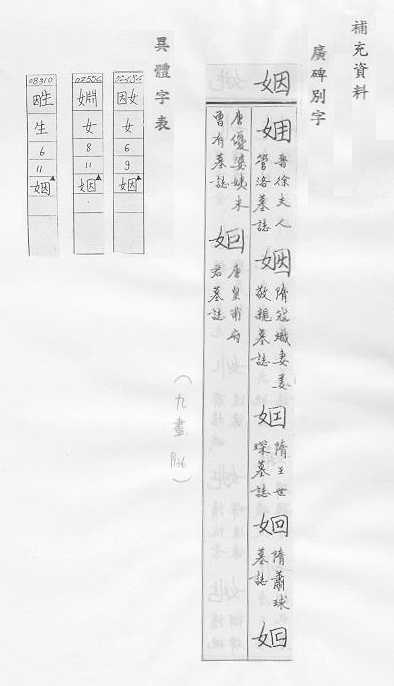 補充資料
廣碑別字
姻
晉徐夫人
管洛墓誌
隋寇熾妻姜
敬親墓誌
隋王世
琛墓誌
隋蕭球
墓誌
唐優婆姨朱
曾有墓誌
唐皇甫府
君墓誌
(九畫 P136)
異體字表
02486
女
6
9
姻
02556
女
8
11
姻
08310
生
6
11
姻